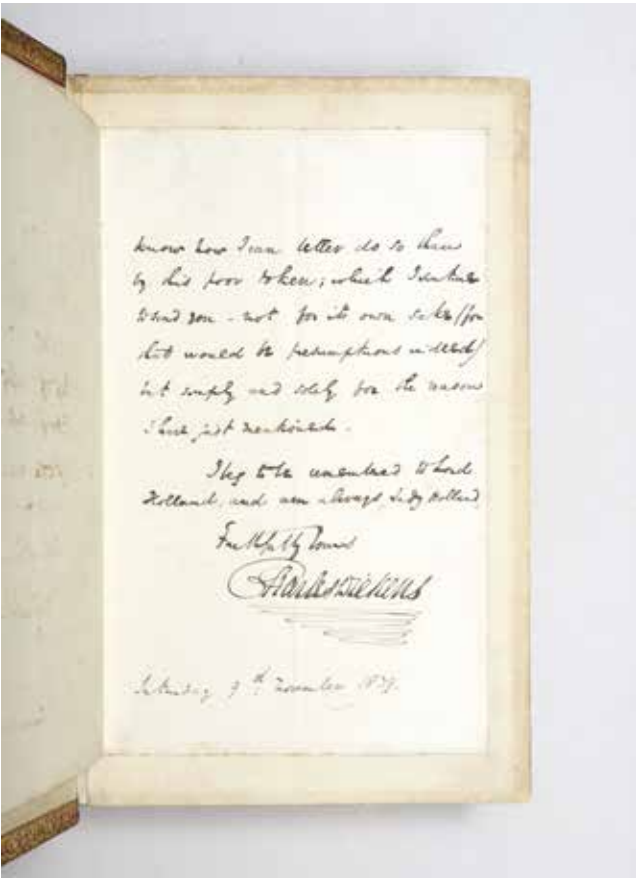 know how I can better do so than
by this poor token; which I venture
to send you - not for its own sake (for
that would be presumptuous indeed)
but simply and solely for the reason
I have just mentioned.
I beg to be remembered to Lord
Holland, and am always, Lady Holland,
Faithfully Yours
Charles Dickens
Saturday 9th November 1839.